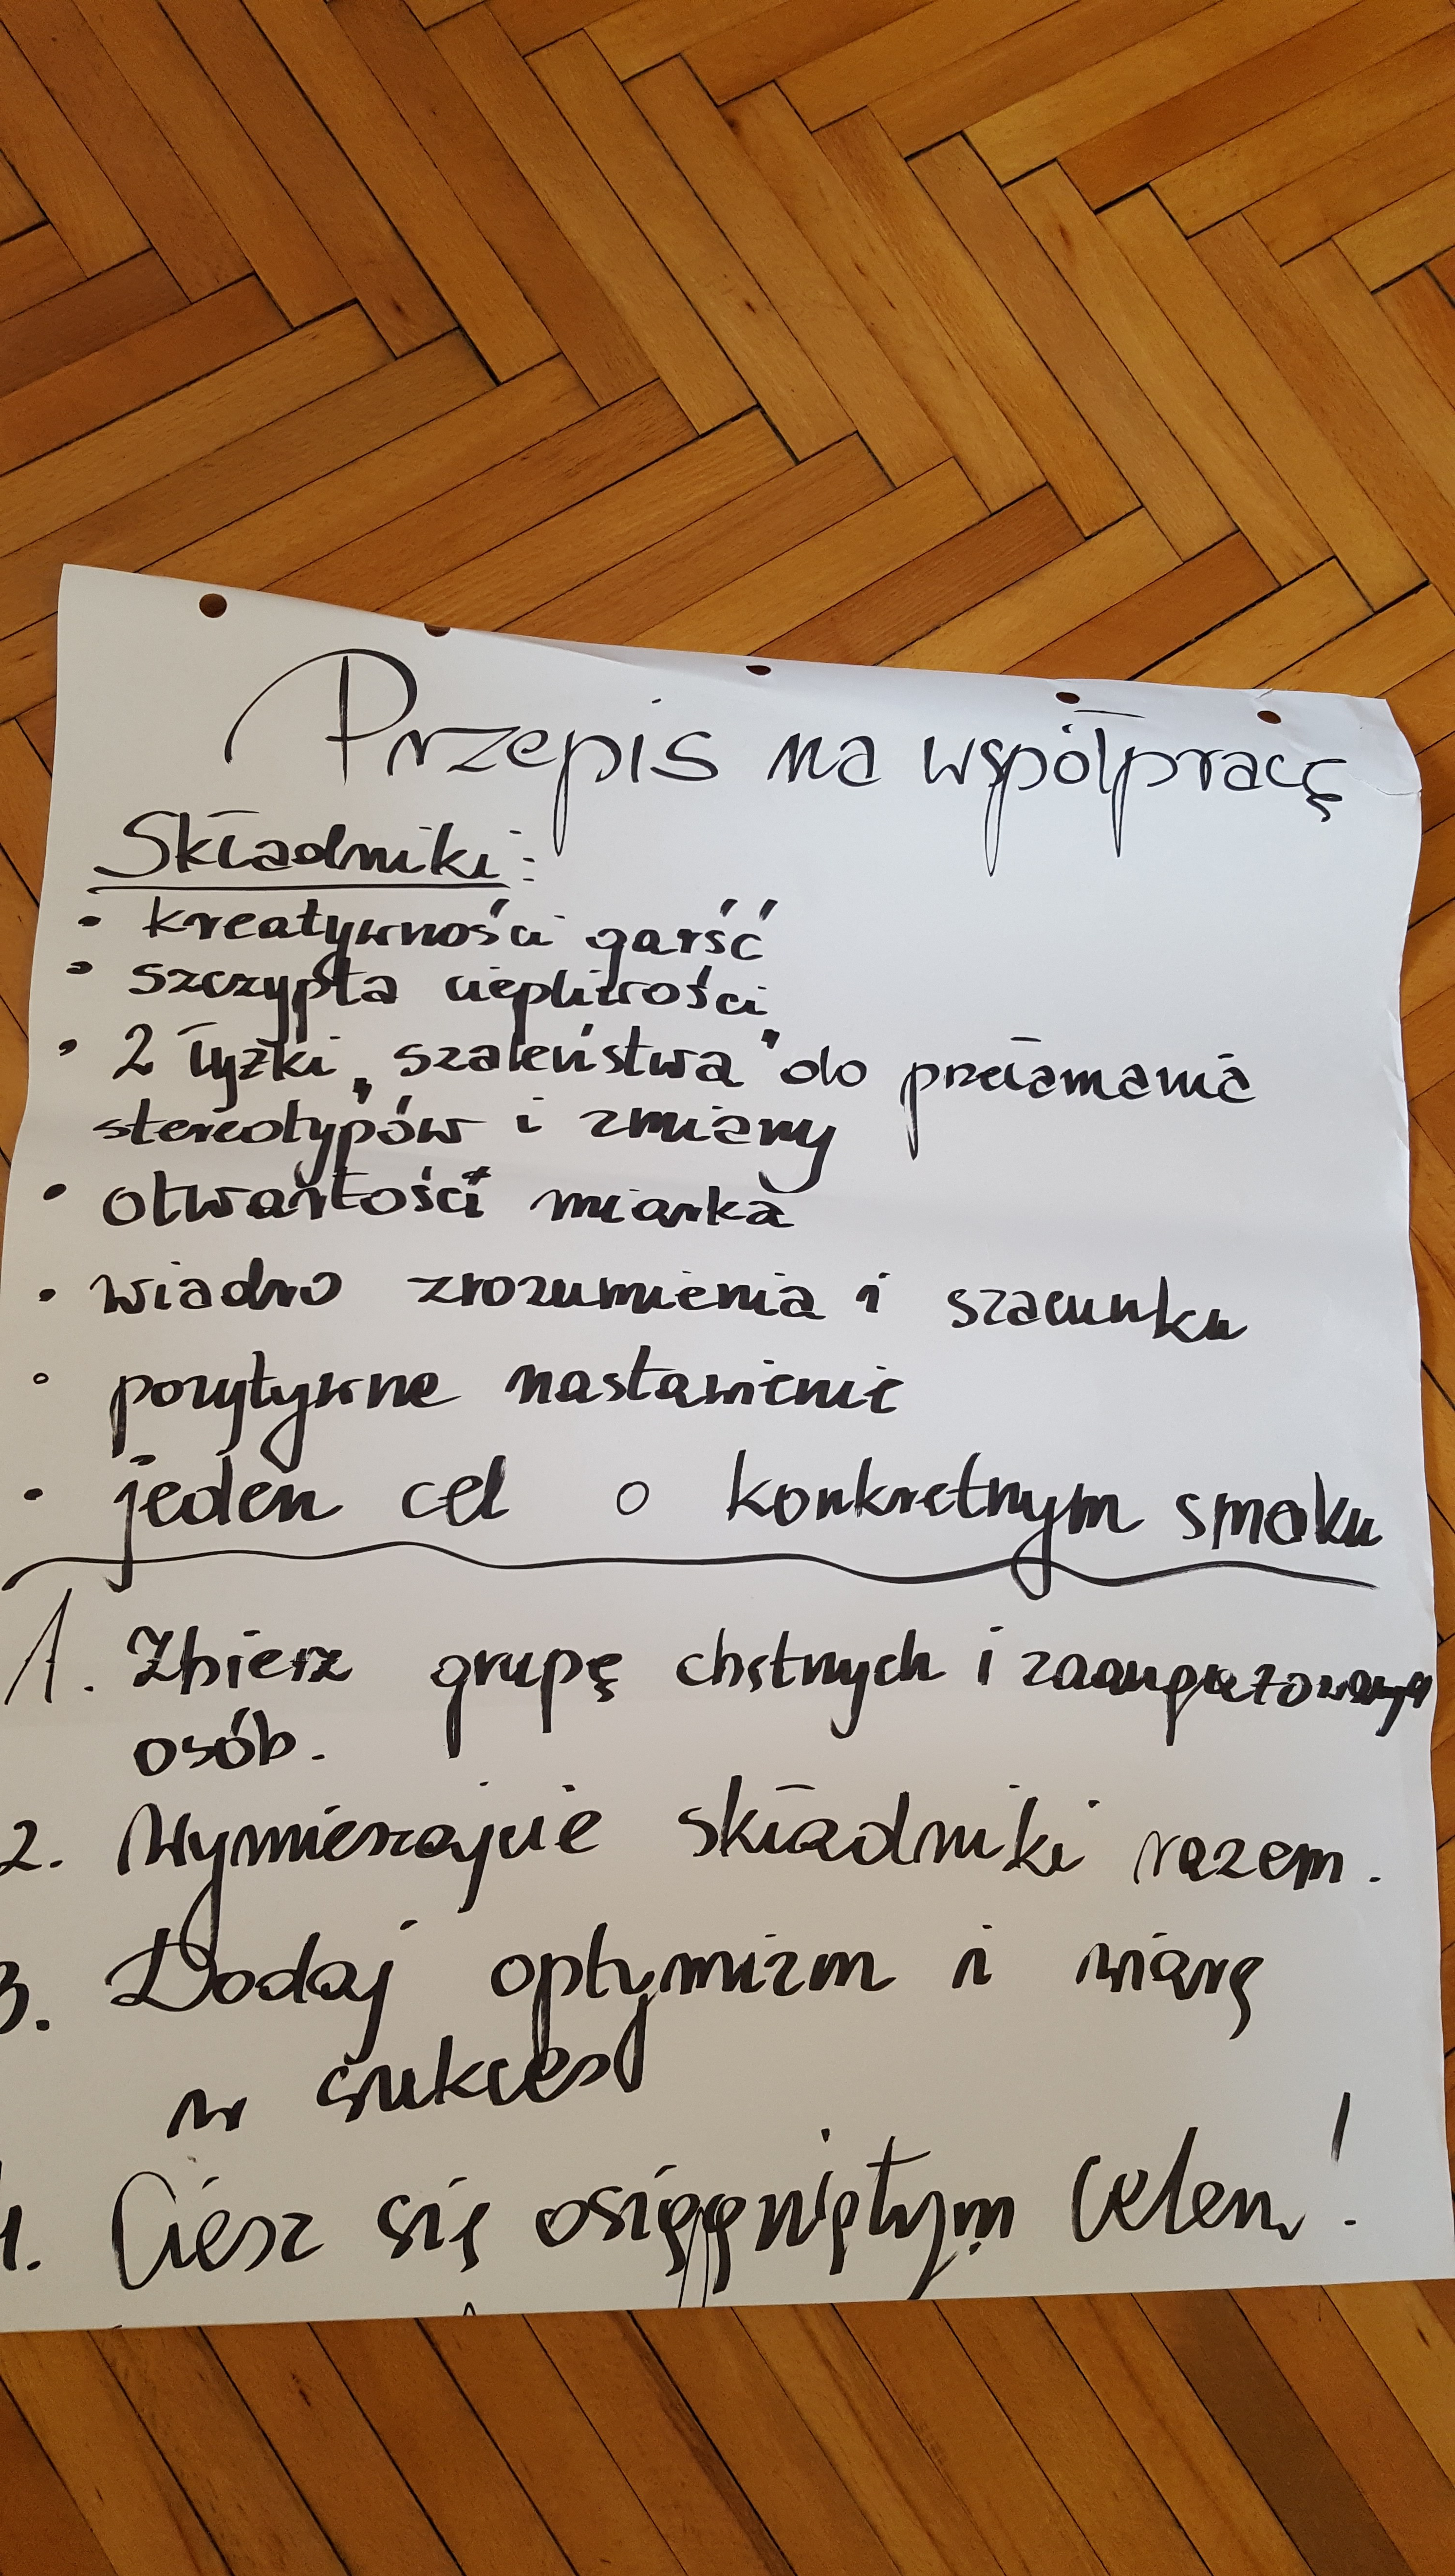 Przepis na współpracę
Składniki:
• kreatywności garść
• szczypta cierpliwości
• 2 łyżki „szaleństwa" do przełamania
stereotypów i zmiany
• otwartości miarka
• wiadro zrozumienia i szacunku
• pozytywne nastawienie
• jeden cel o konkretnym smaku
1. Zbierz grupę chętnych i zaangażowanych
osób.
2. Wymieszajcie składniki razem.
3. Dodaj optymizm i wiarę
w sukces
4. Ciesz się osiągniętym celem!